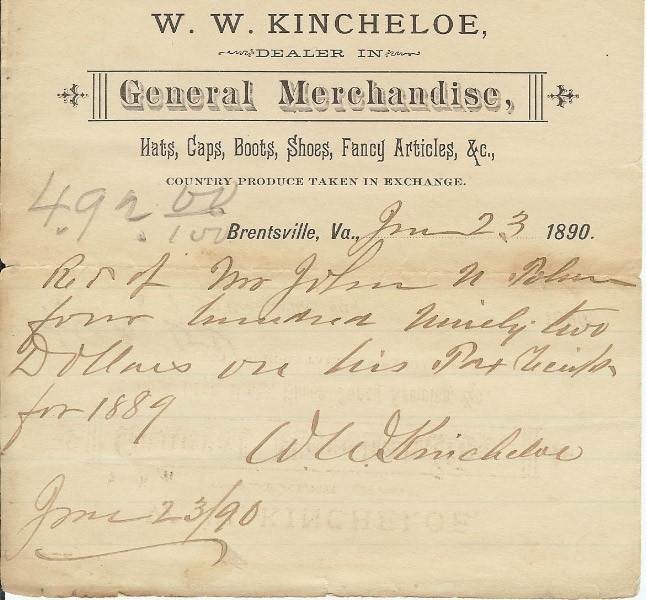 W. W. KINCHELOE,
DEALER IN
General Merchandise,
Hats, Caps, Boots, Shoes, Fancy Articles, &c.,
COUNTRY PRODUCE TAKEN IN EXCHANGE.
492 00/100
Brentsville, Va., Jan 23 1890.
Recd of Mr John N
four hundred Ninety two
Dollars on his Tax
for 1889
W W Kincheloe
Jan 23/90